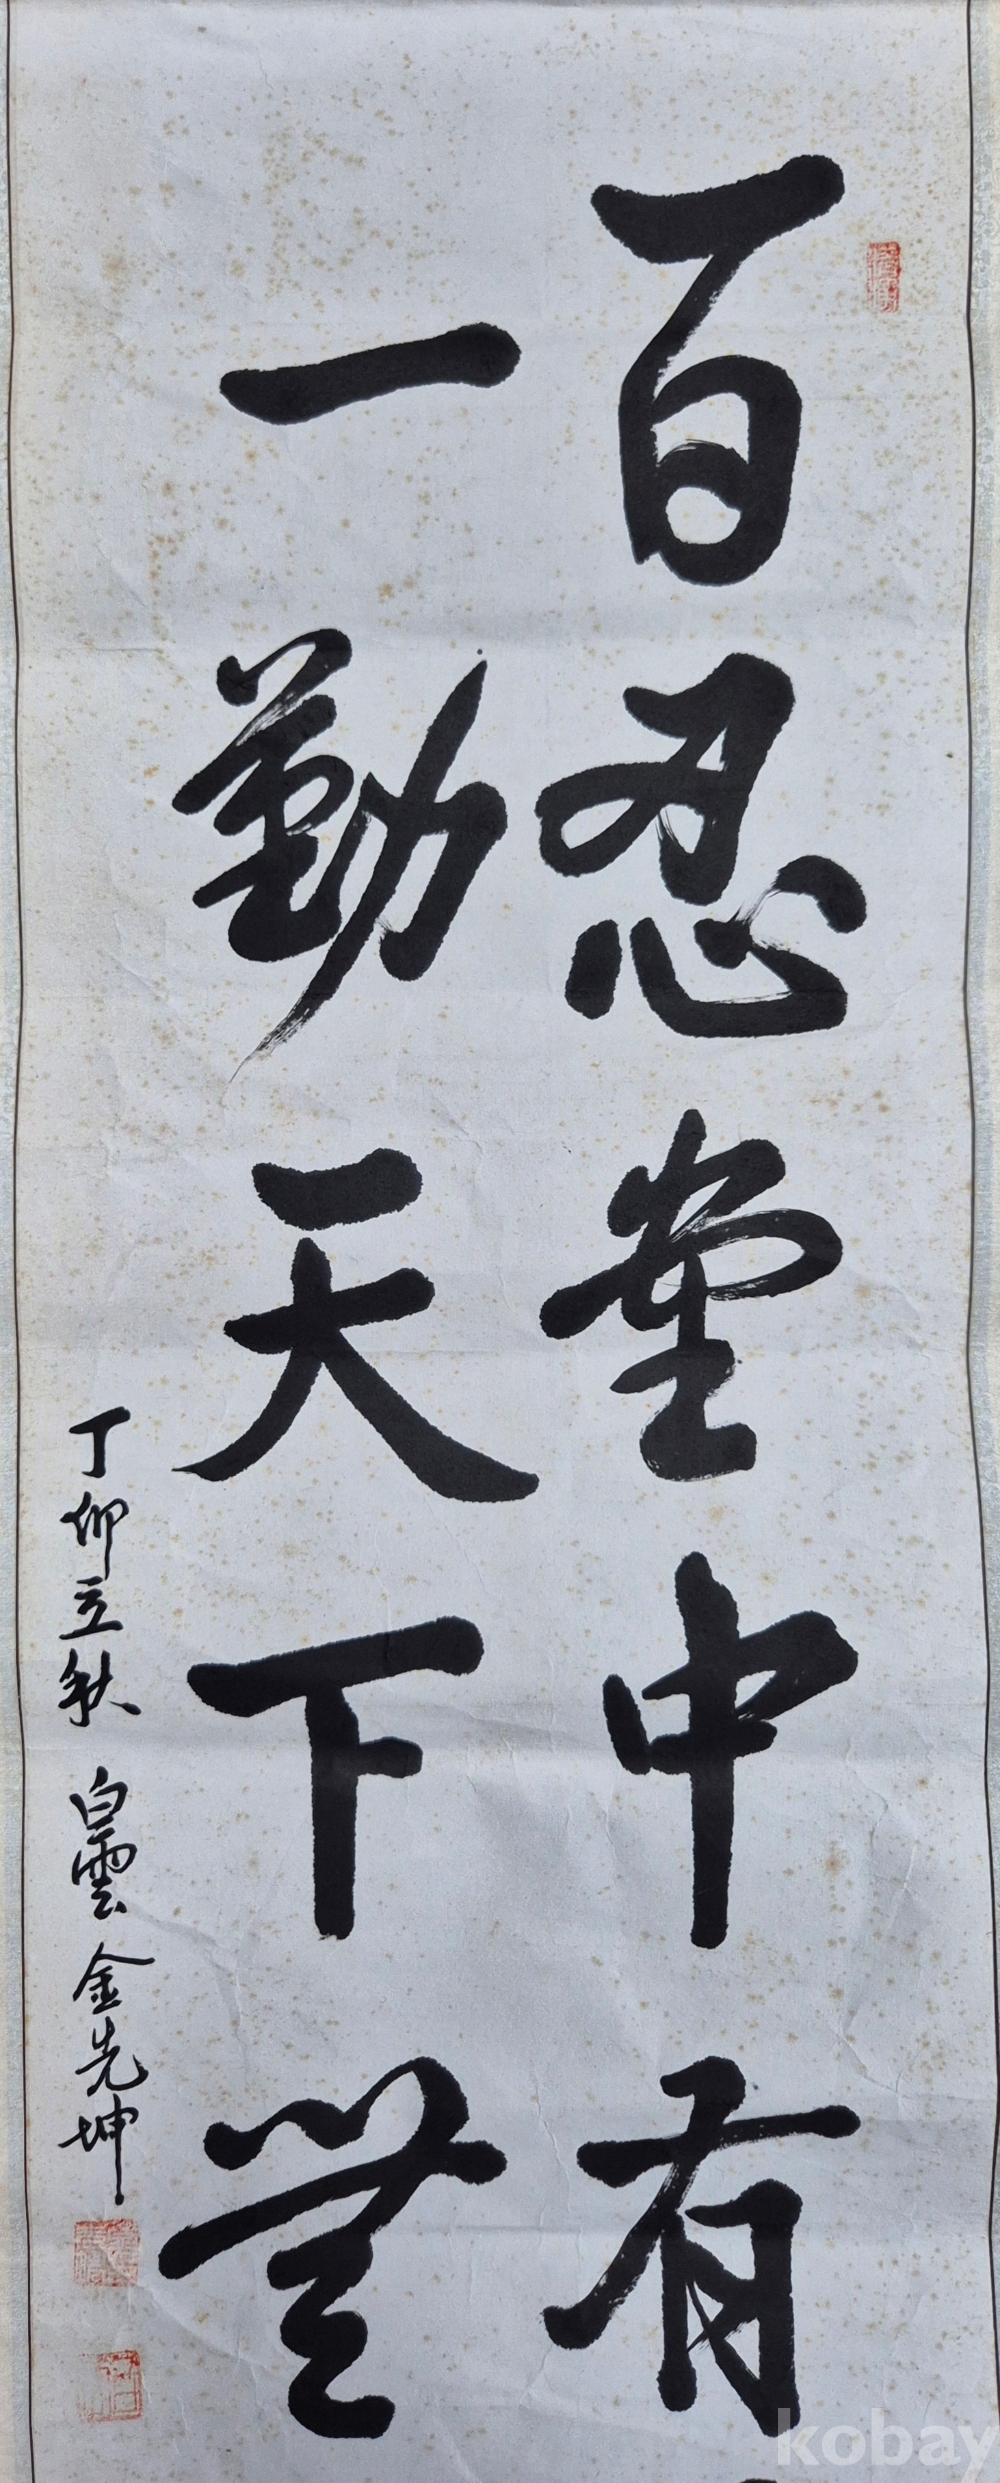 百忍堂中有
一勤天下無
丁卯立秋 白雲 金先坤
kobay